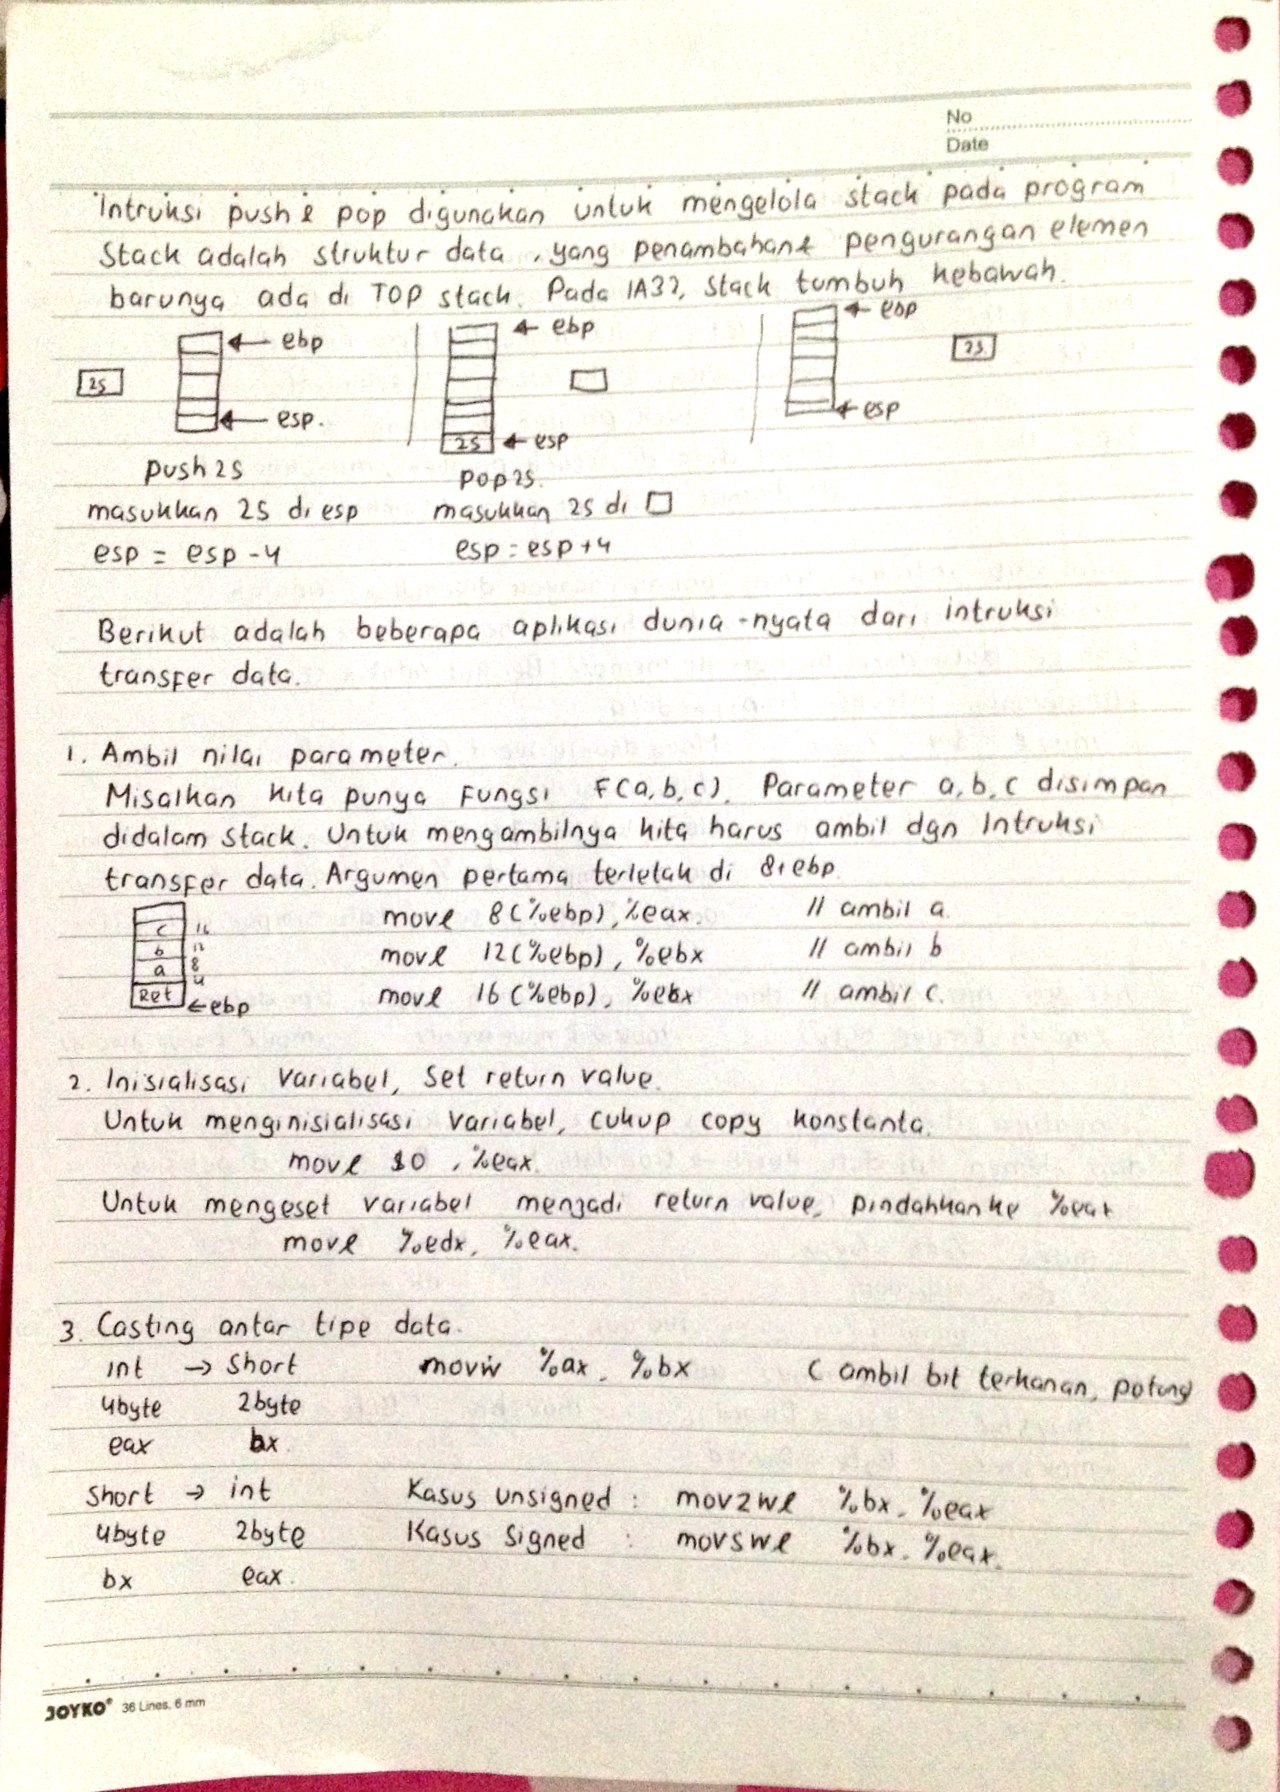 No
Date
Intruksi push & pop digunakan untuk mengelola stack pada program
Stack adalah struktur data, yang penambahan & pengurangan elemen
barunya ada di TOP stack. Pada IA32, Stack tumbuh kebawah.
25 ← ebp ← esp.
← ebp 25 ← esp
← ebp 25 ← esp
push 25 pop 25.
masukkan 25 di esp masukkan 25 di □
esp = esp - 4 esp = esp + 4
Berikut adalah beberapa aplikasi dunia-nyata dari intruksi
transfer data.
1. Ambil nilai parameter.
Misalkan kita punya Fungsi F(a, b, c). Parameter a, b, c disimpan
didalam stack. Untuk mengambilnya kita harus ambil dgn Intruksi
transfer data. Argumen pertama terletak di 8+ebp
move 8(%ebp), %eax. // ambil a.
move 12(%ebp), %ebx // ambil b
move 16(%ebp), %ebx // ambil c.
c 16
b 12
a 8
4
Ret ← ebp
2. Inisialisasi Variabel, Set return value.
Untuk menginisialisasi Variabel, cukup copy konstanta.
move $0, %eax.
Untuk mengeset variabel menjadi return value, pindahkan ke %eax
move %edx, %eax.
3. Casting antar tipe data.
int → Short movw %ax, %bx ( ambil bit terkanan, potong
4byte 2byte
eax bx
Short → int Kasus Unsigned : movzwl %bx, %eax
4byte 2byte Kasus Signed : movswl %bx, %eax.
bx eax.
JOYKO® 36 Lines, 6 mm